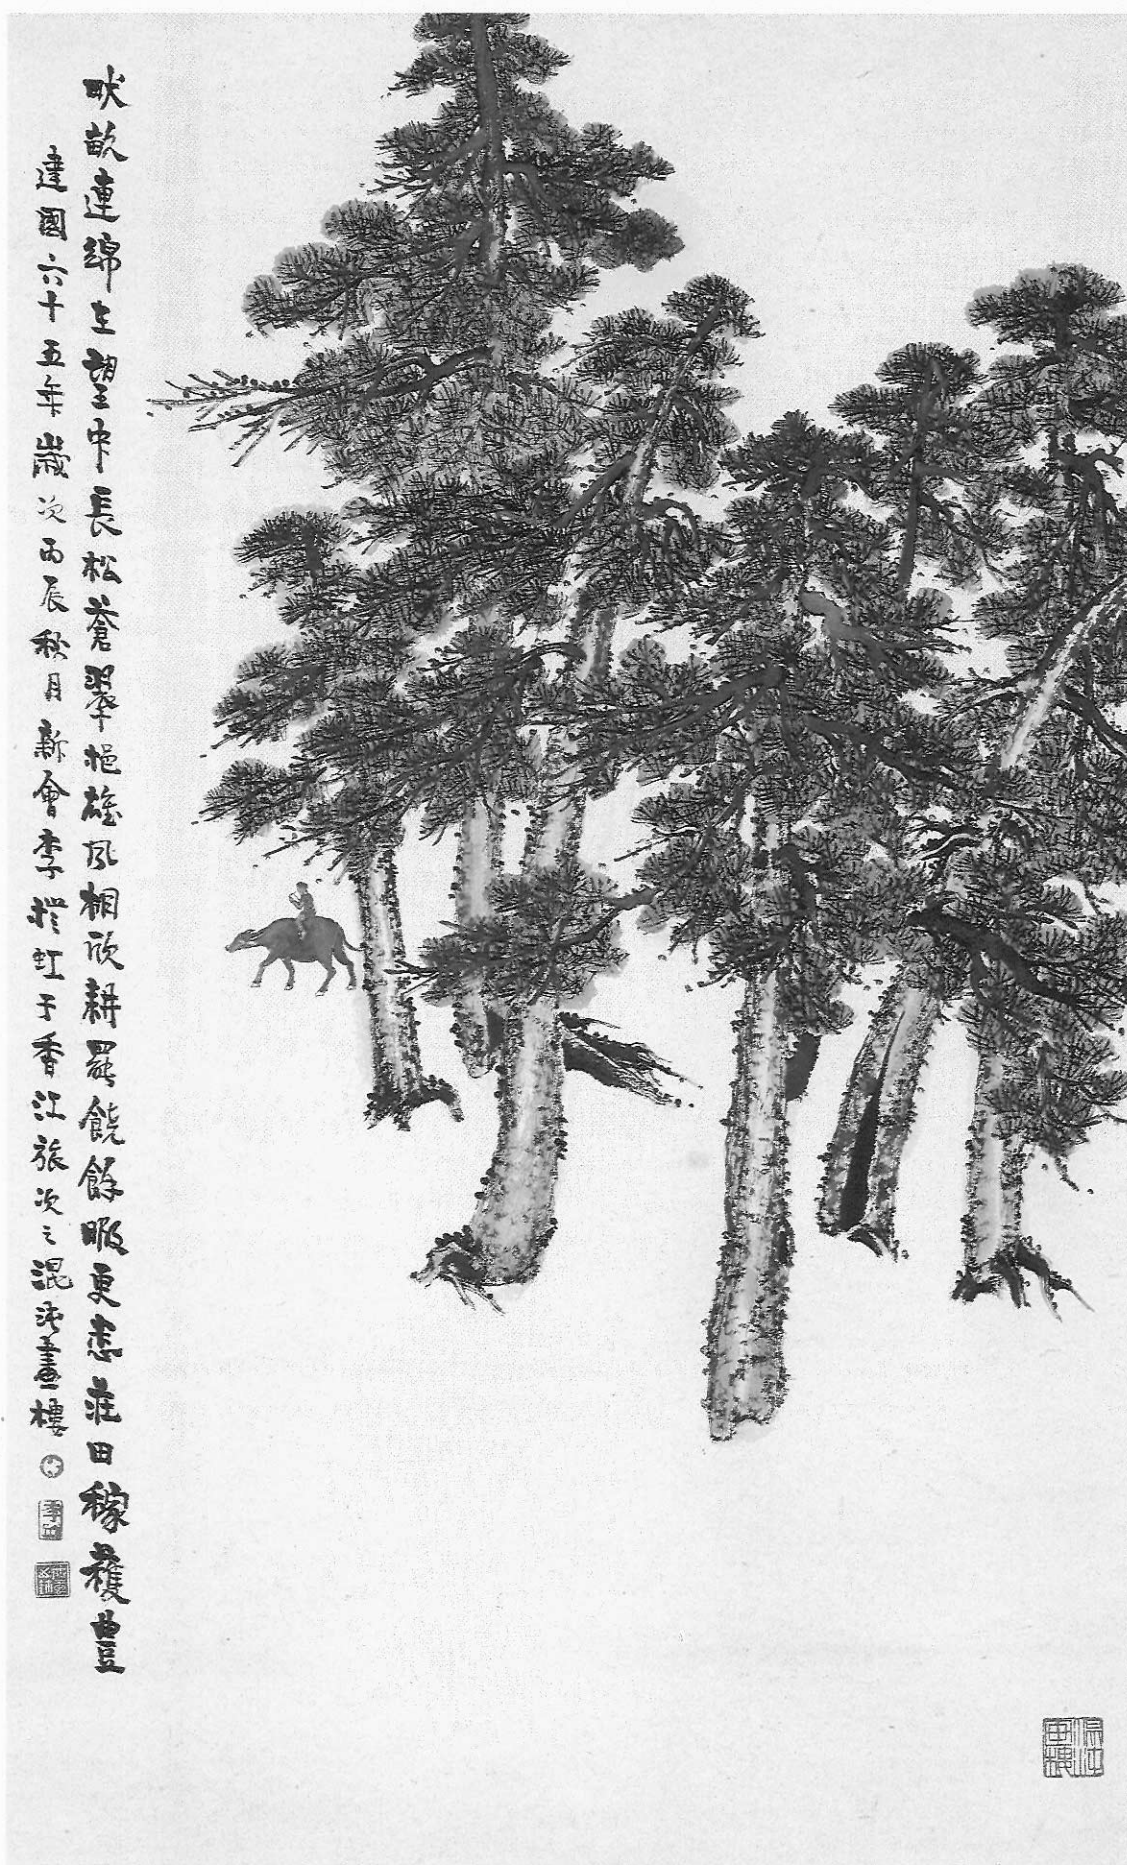 畎畝連綿在望中長松蒼翠挹雄風相欣耕罷饒餘暇更悉莊田稼穫豐
建國六十五年歲次丙辰秋月新會李撫虹于香江旅次之混沌畫樓
混沌畫樓